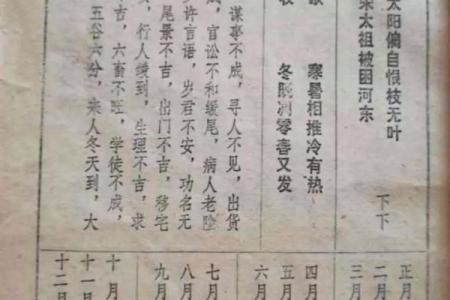 太阳偏自恨枝无叶
太祖被困河东
下下
寒暑相推冷有热
冬脱凋零春又发
谋事不成，寻人不见，出货
成，官讼不和缓尾，病人老险
许言语，岁君不安，功名无
尾景不吉，出门不吉，移宅
，行人缓到，生理不吉，求
不吉，六畜不旺，学徒不成，
五谷六分，来人冬天到，大
正月
二月
三月
四月
五月
六月
七月
八月
九月
十月
十一月
十二月